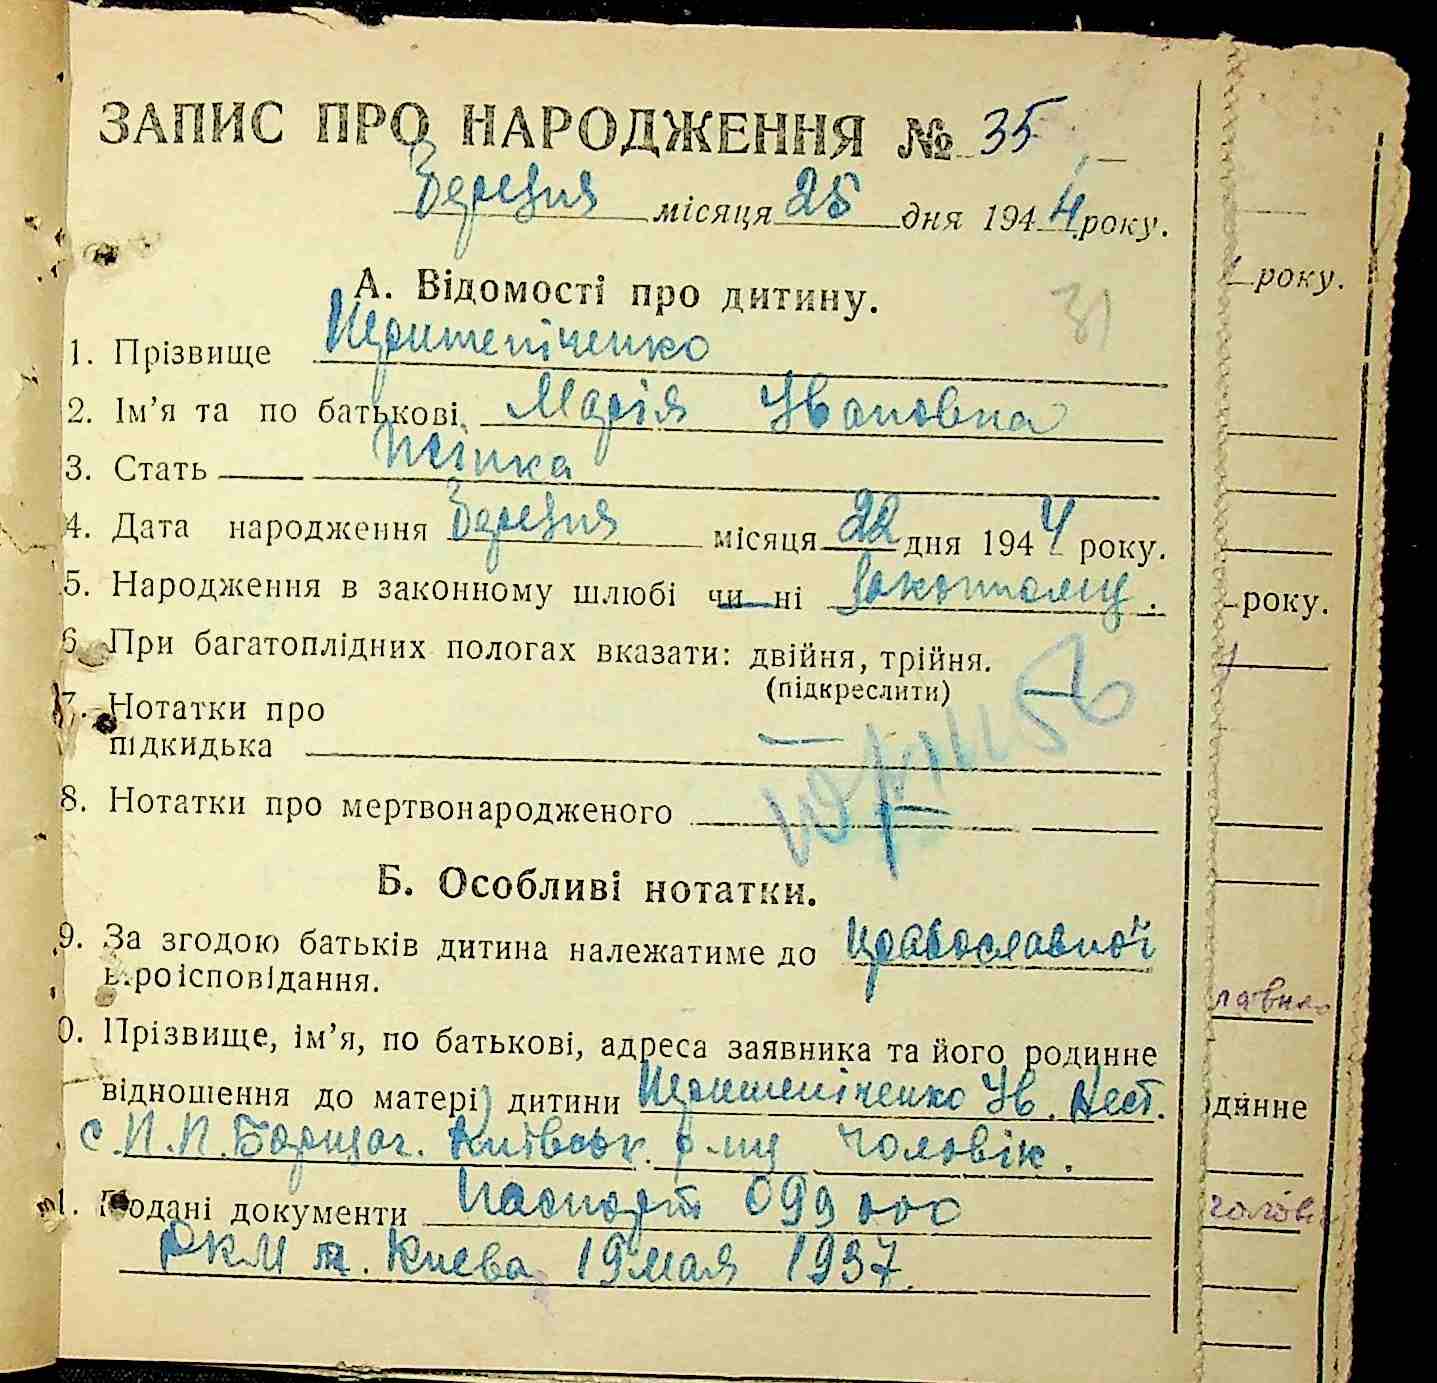 ЗАПИС ПРО НАРОДЖЕННЯ № 35
Березня місяця 25 дня 1944 року.
А. Відомості про дитину.
31
1. Прізвище Притепіченко
2. Ім’я та по батькові Марія Ивановна
3. Стать жінка
4. Дата народження Березня місяця 22 дня 1944 року.
5. Народження в законному шлюбі чи ні законному.
6. При багатоплідних пологах вказати: двійня, трійня.
(підкреслити)
7. Нотатки про
підкидька
8. Нотатки про мертвонародженого
Б. Особливі нотатки.
9. За згодою батьків дитина належатиме до православної
віроісповідання.
0. Прізвище, ім’я, по батькові, адреса заявника та його родинне
відношення до матері дитини Притепіченко Ив. Нест.
с. П. П. Борщаг. Київськ. р-ну чоловік.
1. Подані документи паспорт 099000
РКМ м. Киева 19 мая 1937.
року.
року.
динне